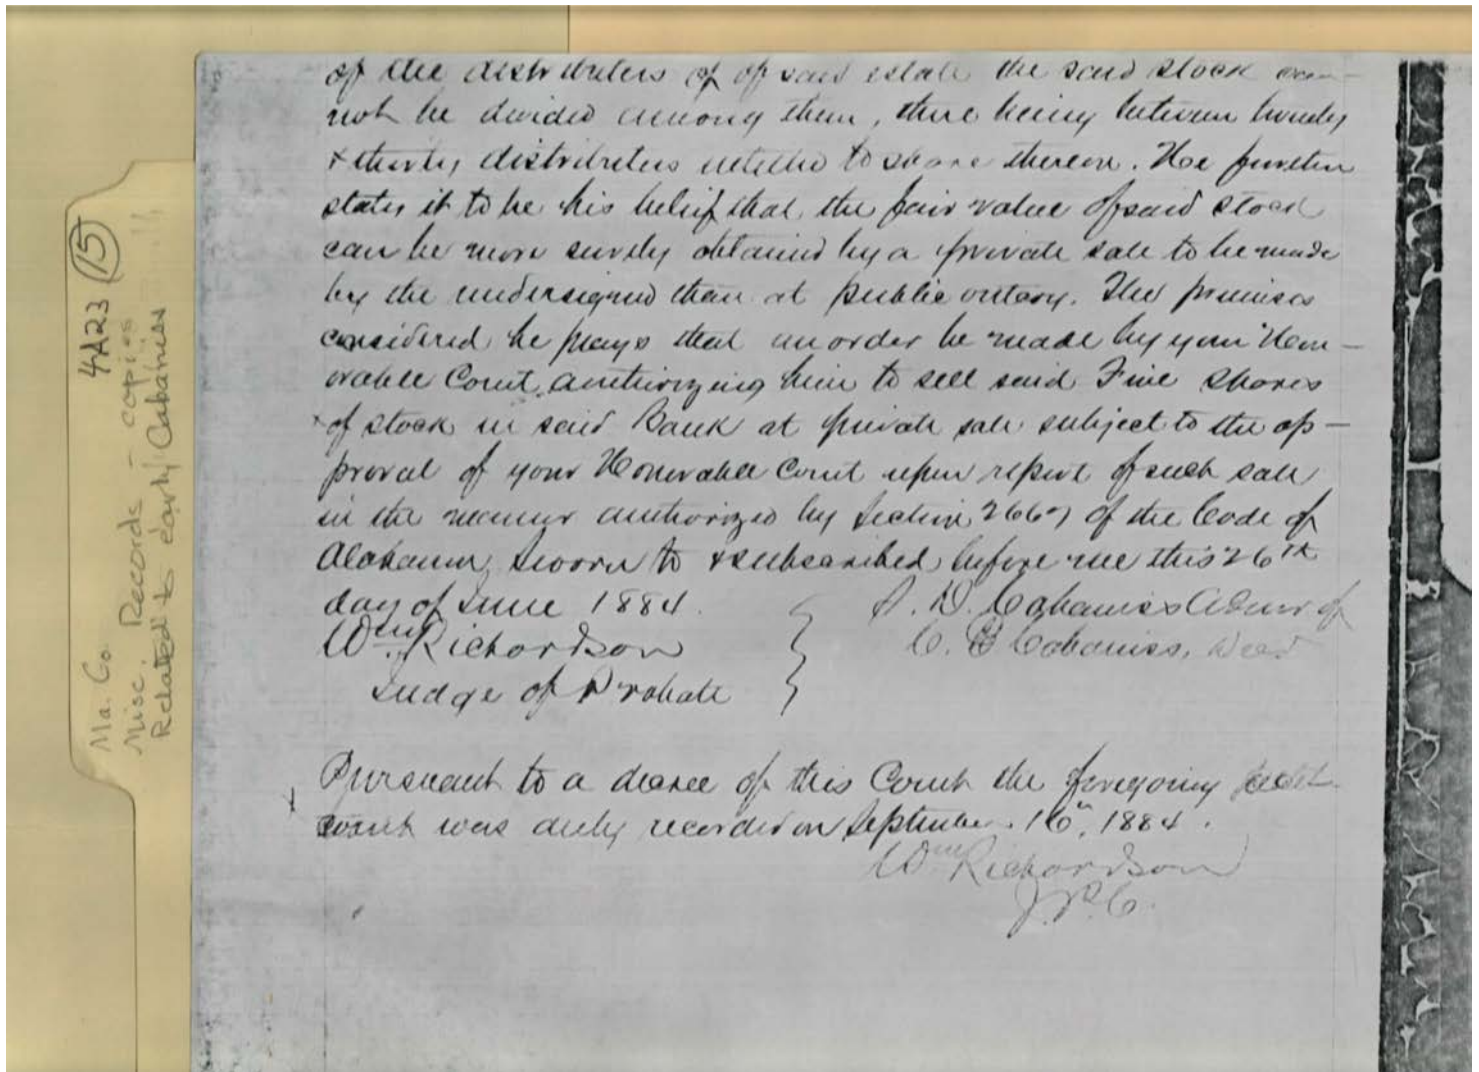 of the distributers of of said estate the said stock can-
not be divided among them, there being between twenty
& thirty distributers intitled to share thereon. He further
states it to be his belief that the fair value of said stock
can be more surely obtained by a private sale to be made
by the undersigned than at public outcry. The premises
considered he prays that an order be made by your Hon-
orable Court authorizing him to sell said Five shares
of stock in said Bank at private sale subject to the ap-
proval of your Honorable Court upon report of such sale
in the manner authorized by Section 2667 of the Code of
Alabama, Sworn to & subscribed before me this 26th
day of June 1884.
Wm Richardson
Judge of Probate
D. Cabaniss Admr of
C. Cabaniss, Decd
Pursuant to a decree of this Court the foregoing
was duly recorded on September 16", 1884.
Wm Richardson
J.P.C.
4A23 (15)
Ma. Co.
Misc. Records - copies
Related to early Cabaniss